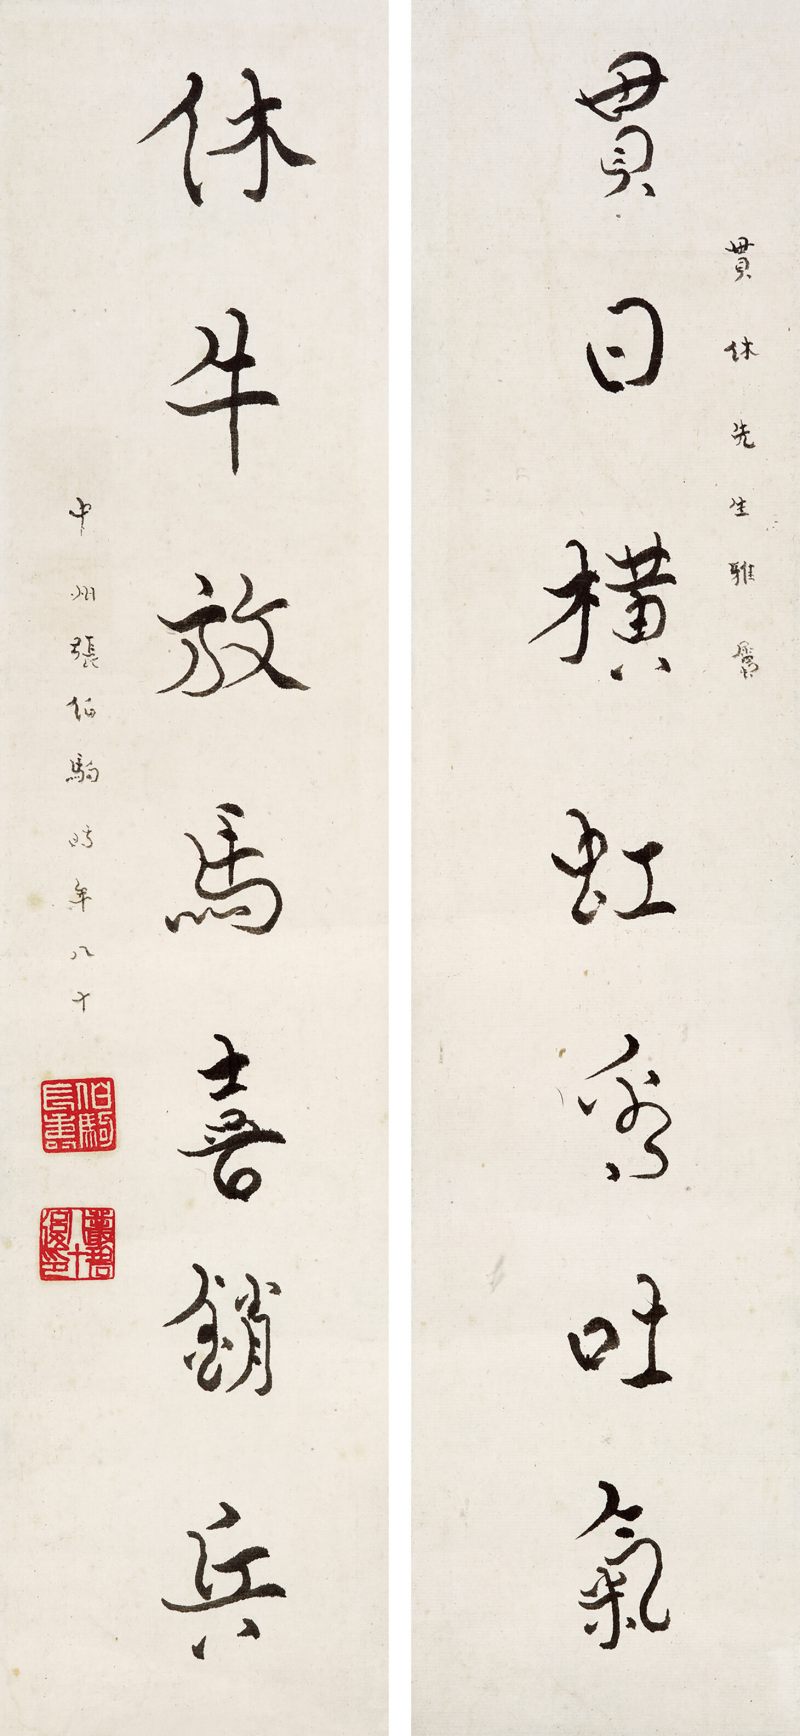 貫休先生雅屬
貫日橫虹吐氣
休牛放馬喜銷兵
中州張伯駒時年八十
伯駒長壽
叢碧八十後印